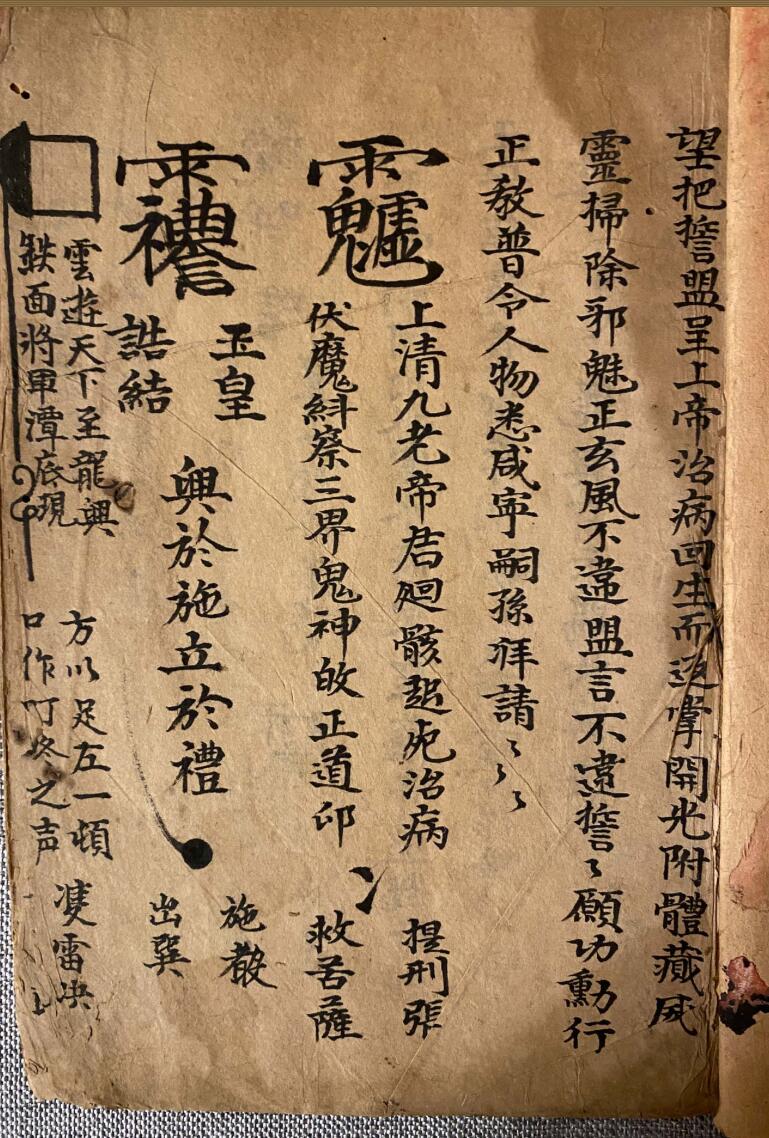 望把誓盟呈上帝治病回生而返掌開光附體藏威
靈掃除邪魅正玄風不違盟言不違誓〻願功勳行
正教普令人物悉咸寧嗣孫拜請〻〻〻
上清九老帝君廻骸起死治病
提刑張
伏魔糾察三界鬼神攸正道印
救苦薩
玉皇
誥結
興於施立於禮
施教
出巽
雲遊天下至龍興
鉄面將軍潭底現
方以足左一頓
口作叮咚之声
雙雷决